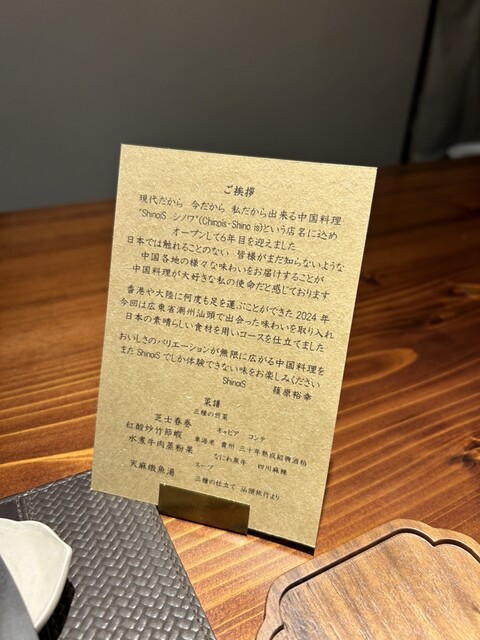 ご挨拶
現代だから 今だから 私だから出来る中国料理
"ShinoiS シノワ"(Chinois-Shino is)という店名に込め
オープンして6年目を迎えました
日本では触れることのない 皆様がまだ知らないような
中国各地の様々な味わいをお届けすることが
中国料理が大好きな私の使命だと感じております
香港や大陸に何度も足を運ぶことができた2024年
今回は広東省潮州汕頭で出会った味わいを取り入れ
日本の素晴らしい食材を用いコースを仕立てました
おいしさのバリエーションが無限に広がる中国料理を
また ShinoiS でしか体験できない味をお楽しみください
ShinoiS 篠原裕幸
菜譜
三種の前菜
芝士春巻 キャビア コンテ
紅酸炒竹節蝦 東海老 貴州 三十年熟成紹興酒粕
水煮牛肉蒸粉果 なにわ黒牛 四川麻辣
スープ
天麻燉魚湯 三種の仕立て 汕頭旅行より